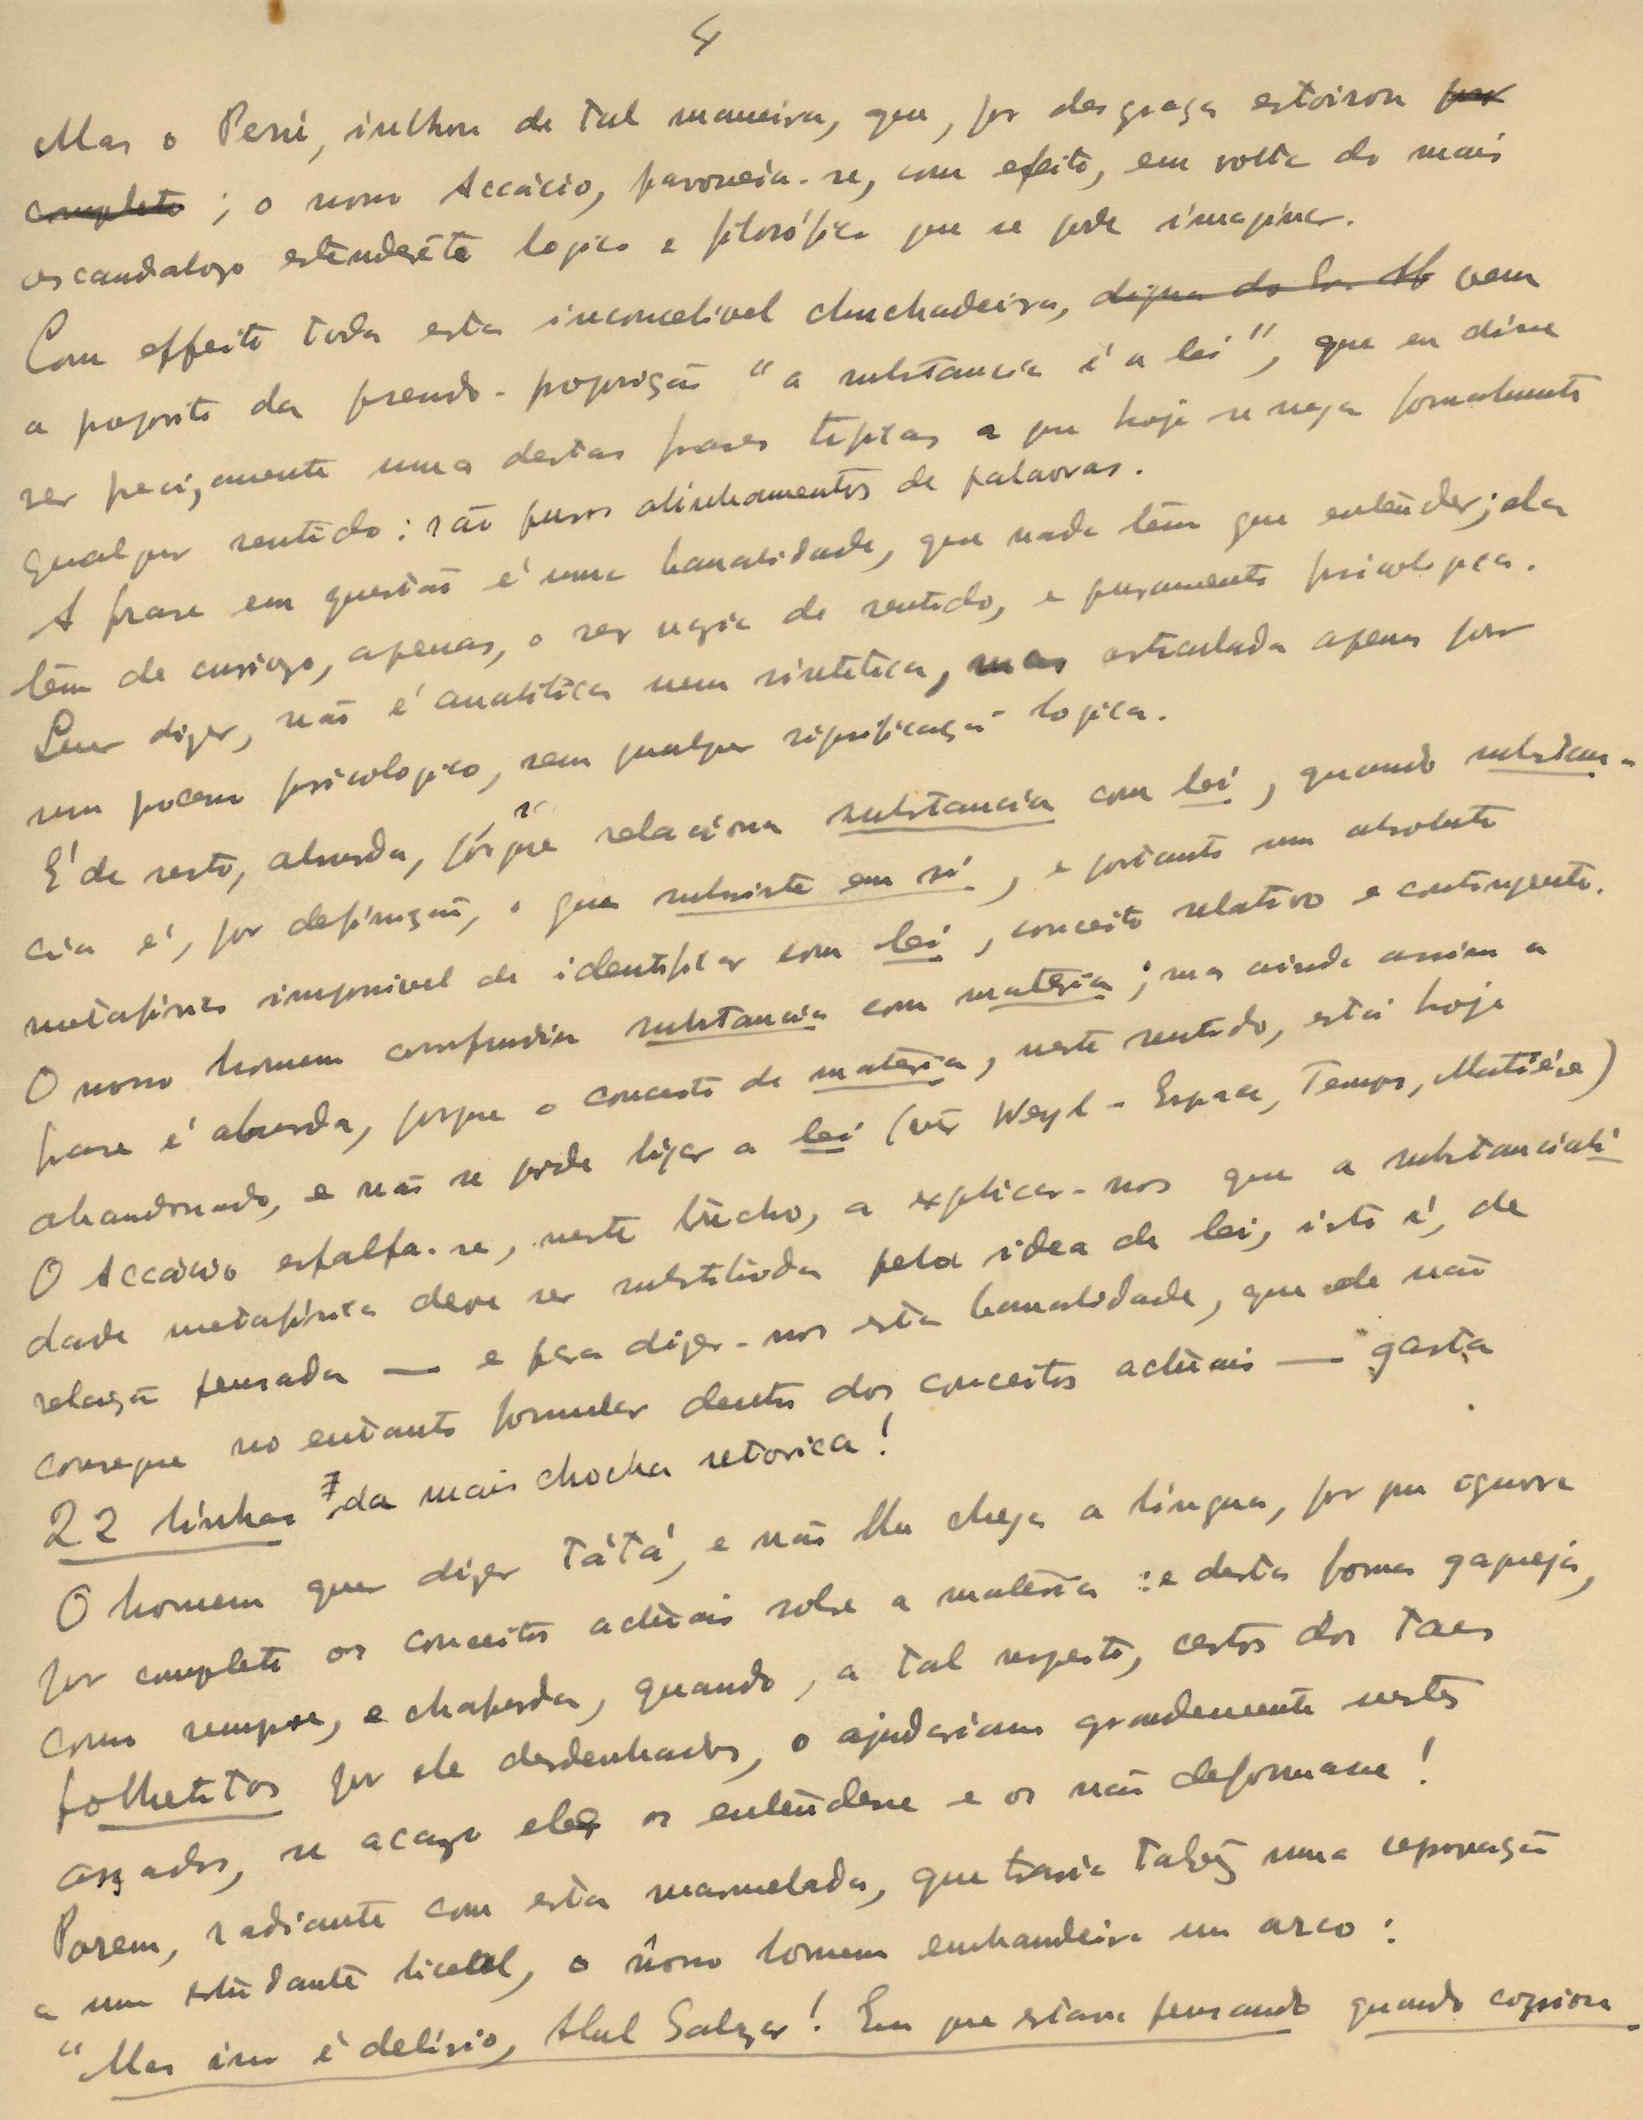 4
Mas o Perú, inchou de tal maneira, que, por desgraça estoirou por
completo ; o novo Accácio, pavoneia-se, com efeito, em volta do mais
escandaloso estenderete logico e filosófico que se pode imaginar.
Com effeito toda esta inconcebivel chuchadeira, digna do vem
a proposito da pseudo-proposição "a substancia é a lei", que eu disse
ser precizamente uma destas frases tipicas a que hoje se nega formalmente
qualquer sentido : são puros alinhamentos de palavras.
A frase em questão é uma banalidade, que nada têm que entender; ela
têm de curiozo, apenas, o ser vazia de sentido, e puramente psicologica.
Quer dizer, não é analitica nem sintetica, mas articulada apenas por
um processo psicologico, sem qualquer significação logica.
É de resto, absurda, pórque relaciona substancia com lei, quando substan-
cia é, por definição, o que subsiste em si, e portanto um absoluto
metafisico impossivel de identificar com lei, conceito relativo e contingente.
O nosso homem confundiu substancia com materia; mas ainda assim a
frase é absurda, porque o conceito de materia, neste sentido, está hoje
abandonado, e não se pode ligar a lei (vêr Weyl - Espace, Temps, Matière)
O Accácio esfalfa-se, neste trecho, a explicar-nos que a substanciali
dade metafisica deve ser substituida pela idea de lei, isto é, de
relação pensada — e para dizer-nos esta banalidade, que ele não
consegue no entanto formular dentro dos conceitos actuais — gasta
22 linhas da mais chocha retorica!
O homem quer dizer tátá, e não lhe chega a lingua, por que ignora
por completo os conceitos actuais sobre a materia : e desta forma gagueja,
como sempre, e chafurda, quando, a tal respeito, certos dos taes
folhetitos por ele desdenhados, o ajudariam grandemente nestes
assados, se acazo ele os entendesse e os não deformasse!
Porem, radiante com esta marmelada, que traria talvez uma reprovação
a um estudante liceal, o nosso homem embandeira em arco :
"Mas isso é delirio, Abel Salazar! Em que estava pensando quando copiou